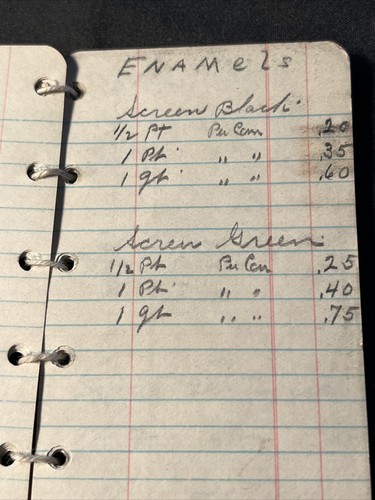 ENAMELS
Screen Black.
1/2 Pt Per Can .20
1 Pt. " " .35
1 qt. " " .60
Screen Green.
1/2 Pt Per Can .25
1 Pt. " " .40
1 qt " " .75